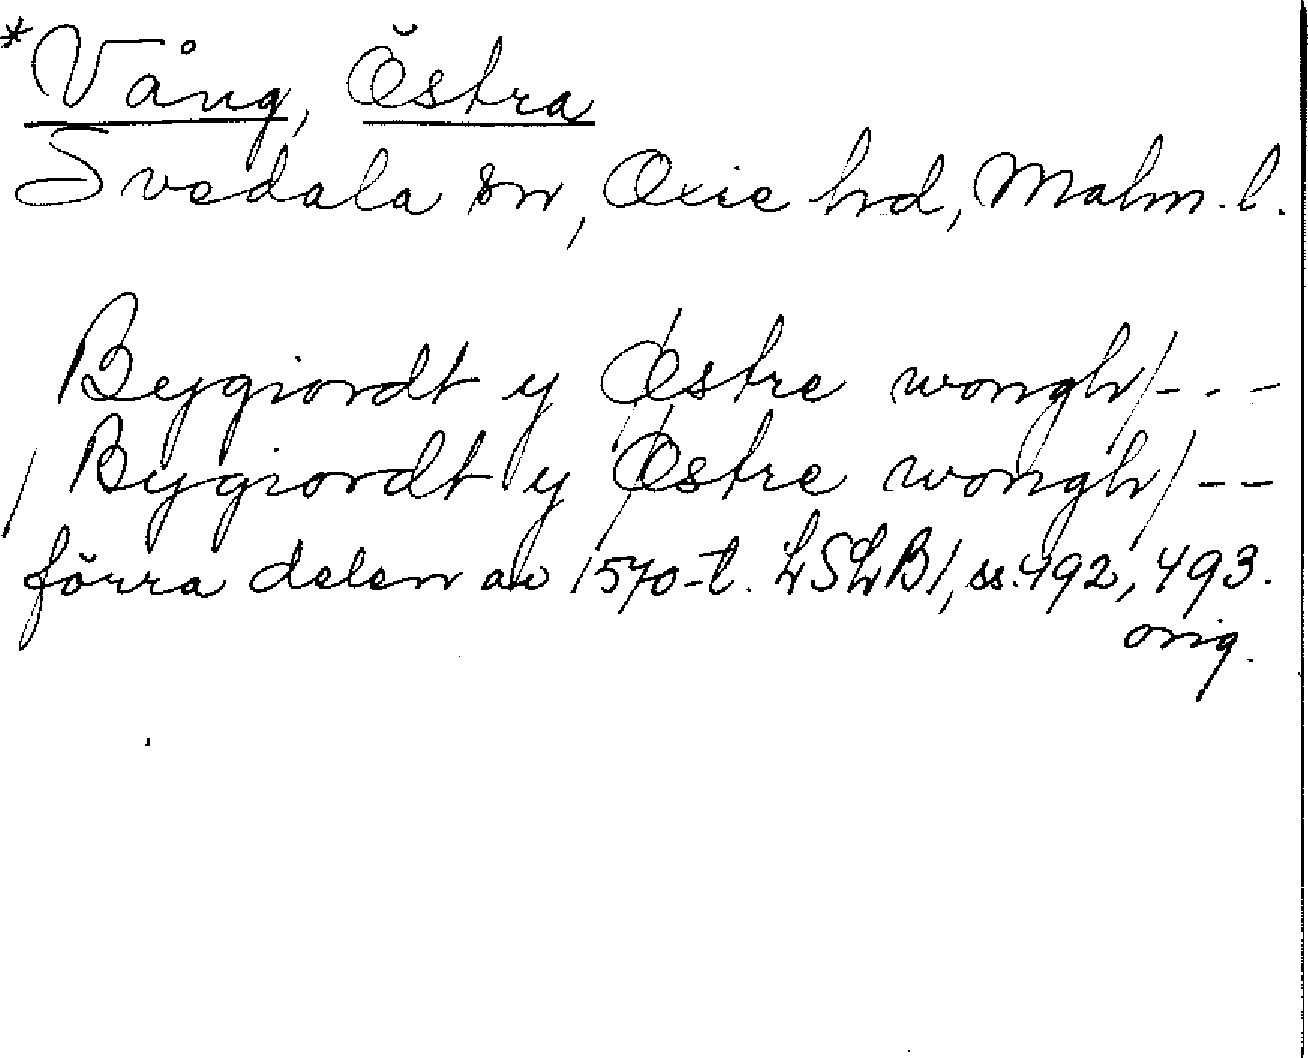 *Vång, Östra
Svedala sn, Oxie hd, Malm. l.
Bygiordt y Østre wongh/ - - -
/ Bygiordt y Østre wongh/ - -
förra delen av 1570-t. LSLB1, ss. 492, 493.
orig.